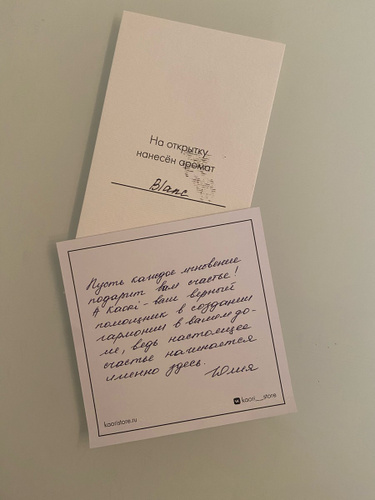 На открытку
нанесён аромат
Blanc
Пусть каждое мгновение
подарит вам счастье!
А Kaori - ваш верный
помощник в создании
гармонии в вашем до-
ме, ведь настоящее
счастье начинается
именно здесь.
Юлия
kaoristore.ru
kaori__store